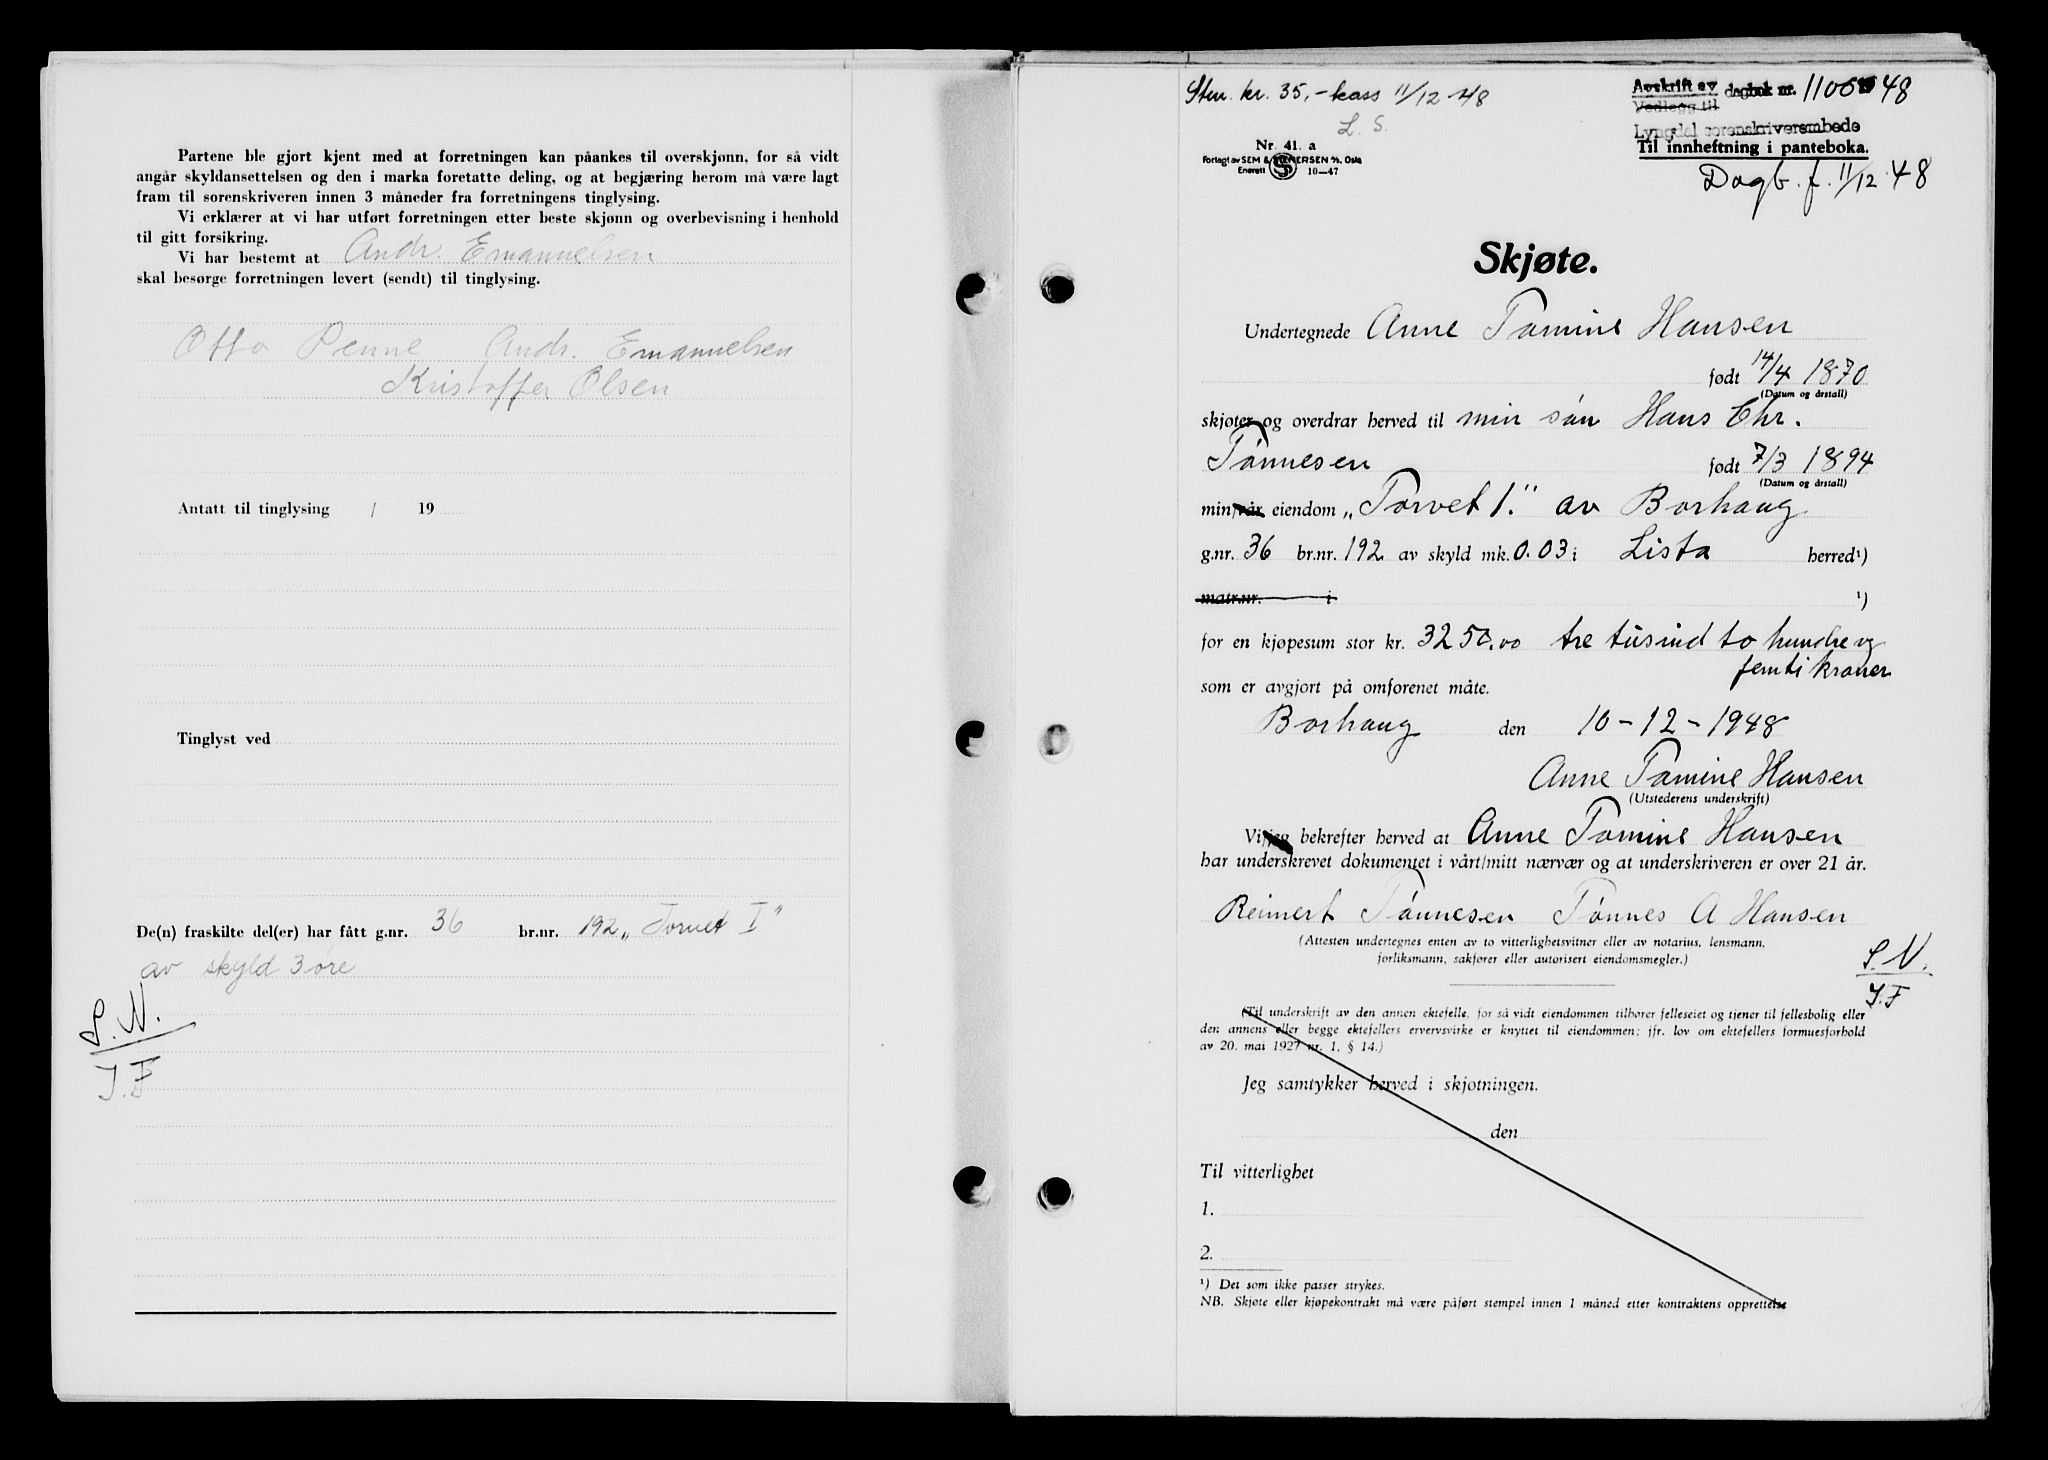 Partene ble gjort kjent med at forretningen kan påankes til overskjønn, for så vidt
angår skyldansettelsen og den i marka foretatte deling, og at begjæring herom må være lagt
fram til sorenskriveren innen 3 måneder fra forretningens tinglysing.
Vi erklærer at vi har utført forretningen etter beste skjønn og overbevisning i henhold
til gitt forsikring.
Vi har bestemt at Andr. Emanuelsen
skal besørge forretningen levert (sendt) til tinglysing.
Otto Penne Andr. Emanuelsen
Kristoffer Olsen
Antatt til tinglysing / 19
Tinglyst ved
De(n) fraskilte del(er) har fått g.nr. 36 br.nr. 192 „Torvet I"
av skyld 3 øre
S.N.
J.F
Stem. kr. 35,- kass 11/12 48
L. S.
Nr. 41. a
Forlagt av SEM & STENERSEN A/S, Oslo
Enerett 10—47
Avskrift av dagbok nr. 1100 48
Vedlegg til
Lyngdal sorenskriverembede
Til innheftning i panteboka.
Dagb. f. 11/12 48
Skjøte.
Undertegnede Anne Tomine Hansen
født 14/4 1870
(Datum og årstall)
skjøter og overdrar herved til min sön Hans Chr.
Tönnesen født 7/3 1894
(Datum og årstall)
min/vår eiendom „Torvet 1." av Borhaug
g.nr. 36 br.nr. 192 av skyld mk. 0.03 i Lista herred¹)
matr.nr. i ¹)
for en kjøpesum stor kr. 3250.00 tre tusind to hundre og
femti kroner
som er avgjort på omforenet måte.
Borhaug den 10-12-1948
Anne Tomine Hansen
(Utstederens underskrift)
Vi/jeg bekrefter herved at Anne Tomine Hansen
har underskrevet dokumentet i vårt/mitt nærvær og at underskriveren er over 21 år.
Reinert Tönnesen Tönnes A Hansen
(Attesten undertegnes enten av to vitterlighetsvitner eller av notarius, lensmann,
forliksmann, sakfører eller autorisert eiendomsmegler.)
S.N.
J.F
(Til underskrift av den annen ektefelle, for så vidt eiendommen tilhører felleseiet og tjener til fellesbolig eller
den annens eller begge ektefellers ervervsvirke er knyttet til eiendommen; jfr. lov om ektefellers formuesforhold
av 20. mai 1927 nr. 1, § 14.)
Jeg samtykker herved i skjøtningen.
den
Til vitterlighet
1.
2.
¹) Det som ikke passer strykes.
NB. Skjøte eller kjøpekontrakt må være påført stempel innen 1 måned etter kontraktens opprettelse